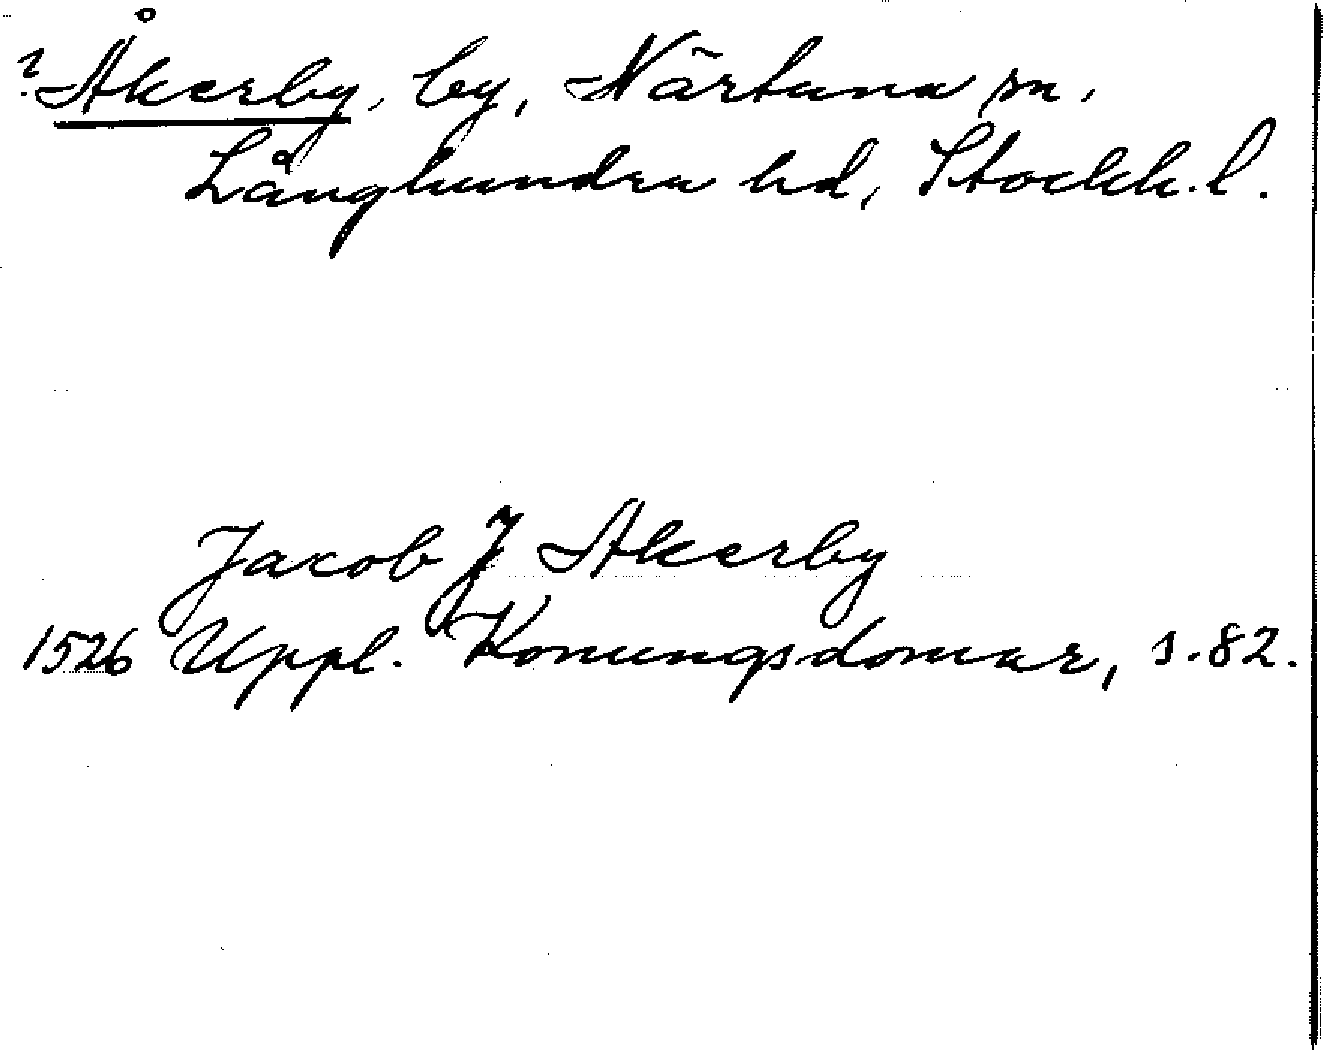 ? Åkerby, by, Närtuna sn.
Långhundra hd, Stockh. l.
Jacob J Akerby
1526 Uppl. Konungsdomar, s. 82.